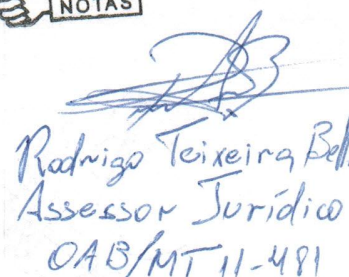 NOTAS
Rodrigo Teixeira Bel
Assessor Jurídico
OAB/MT 11-481